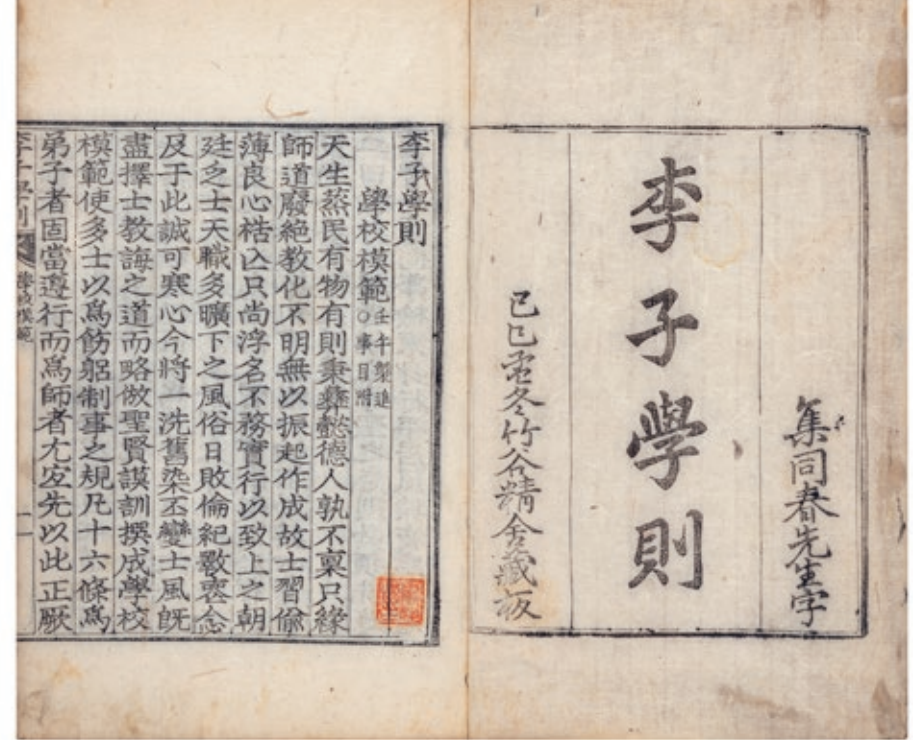 集同春先生字
李子學則
己巳孟冬竹谷精舍藏板
李子學則
學校模範 壬午製進 ○事目附
天生蒸民有物有則秉彛懿德人孰不稟只緣
師道廢絕教化不明無以振起作成故士習偷
薄良心梏亾只尚浮名不務實行以致上之朝
廷乏士天職多曠下之風俗日敗倫紀斁喪念
及于此誠可寒心今將一洗舊染丕變士風旣
盡擇士教誨之道而略倣聖賢謨訓撰成學校
模範使多士以爲飭躬制事之規凡十六條爲
弟子者固當遵行而爲師者尤宜先以此正厥
李子學則 學校模範 一